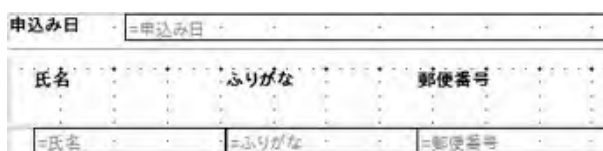 申込み日 =申込み日
氏名 ふりがな 郵便番号
=氏名 =ふりがな =郵便番号